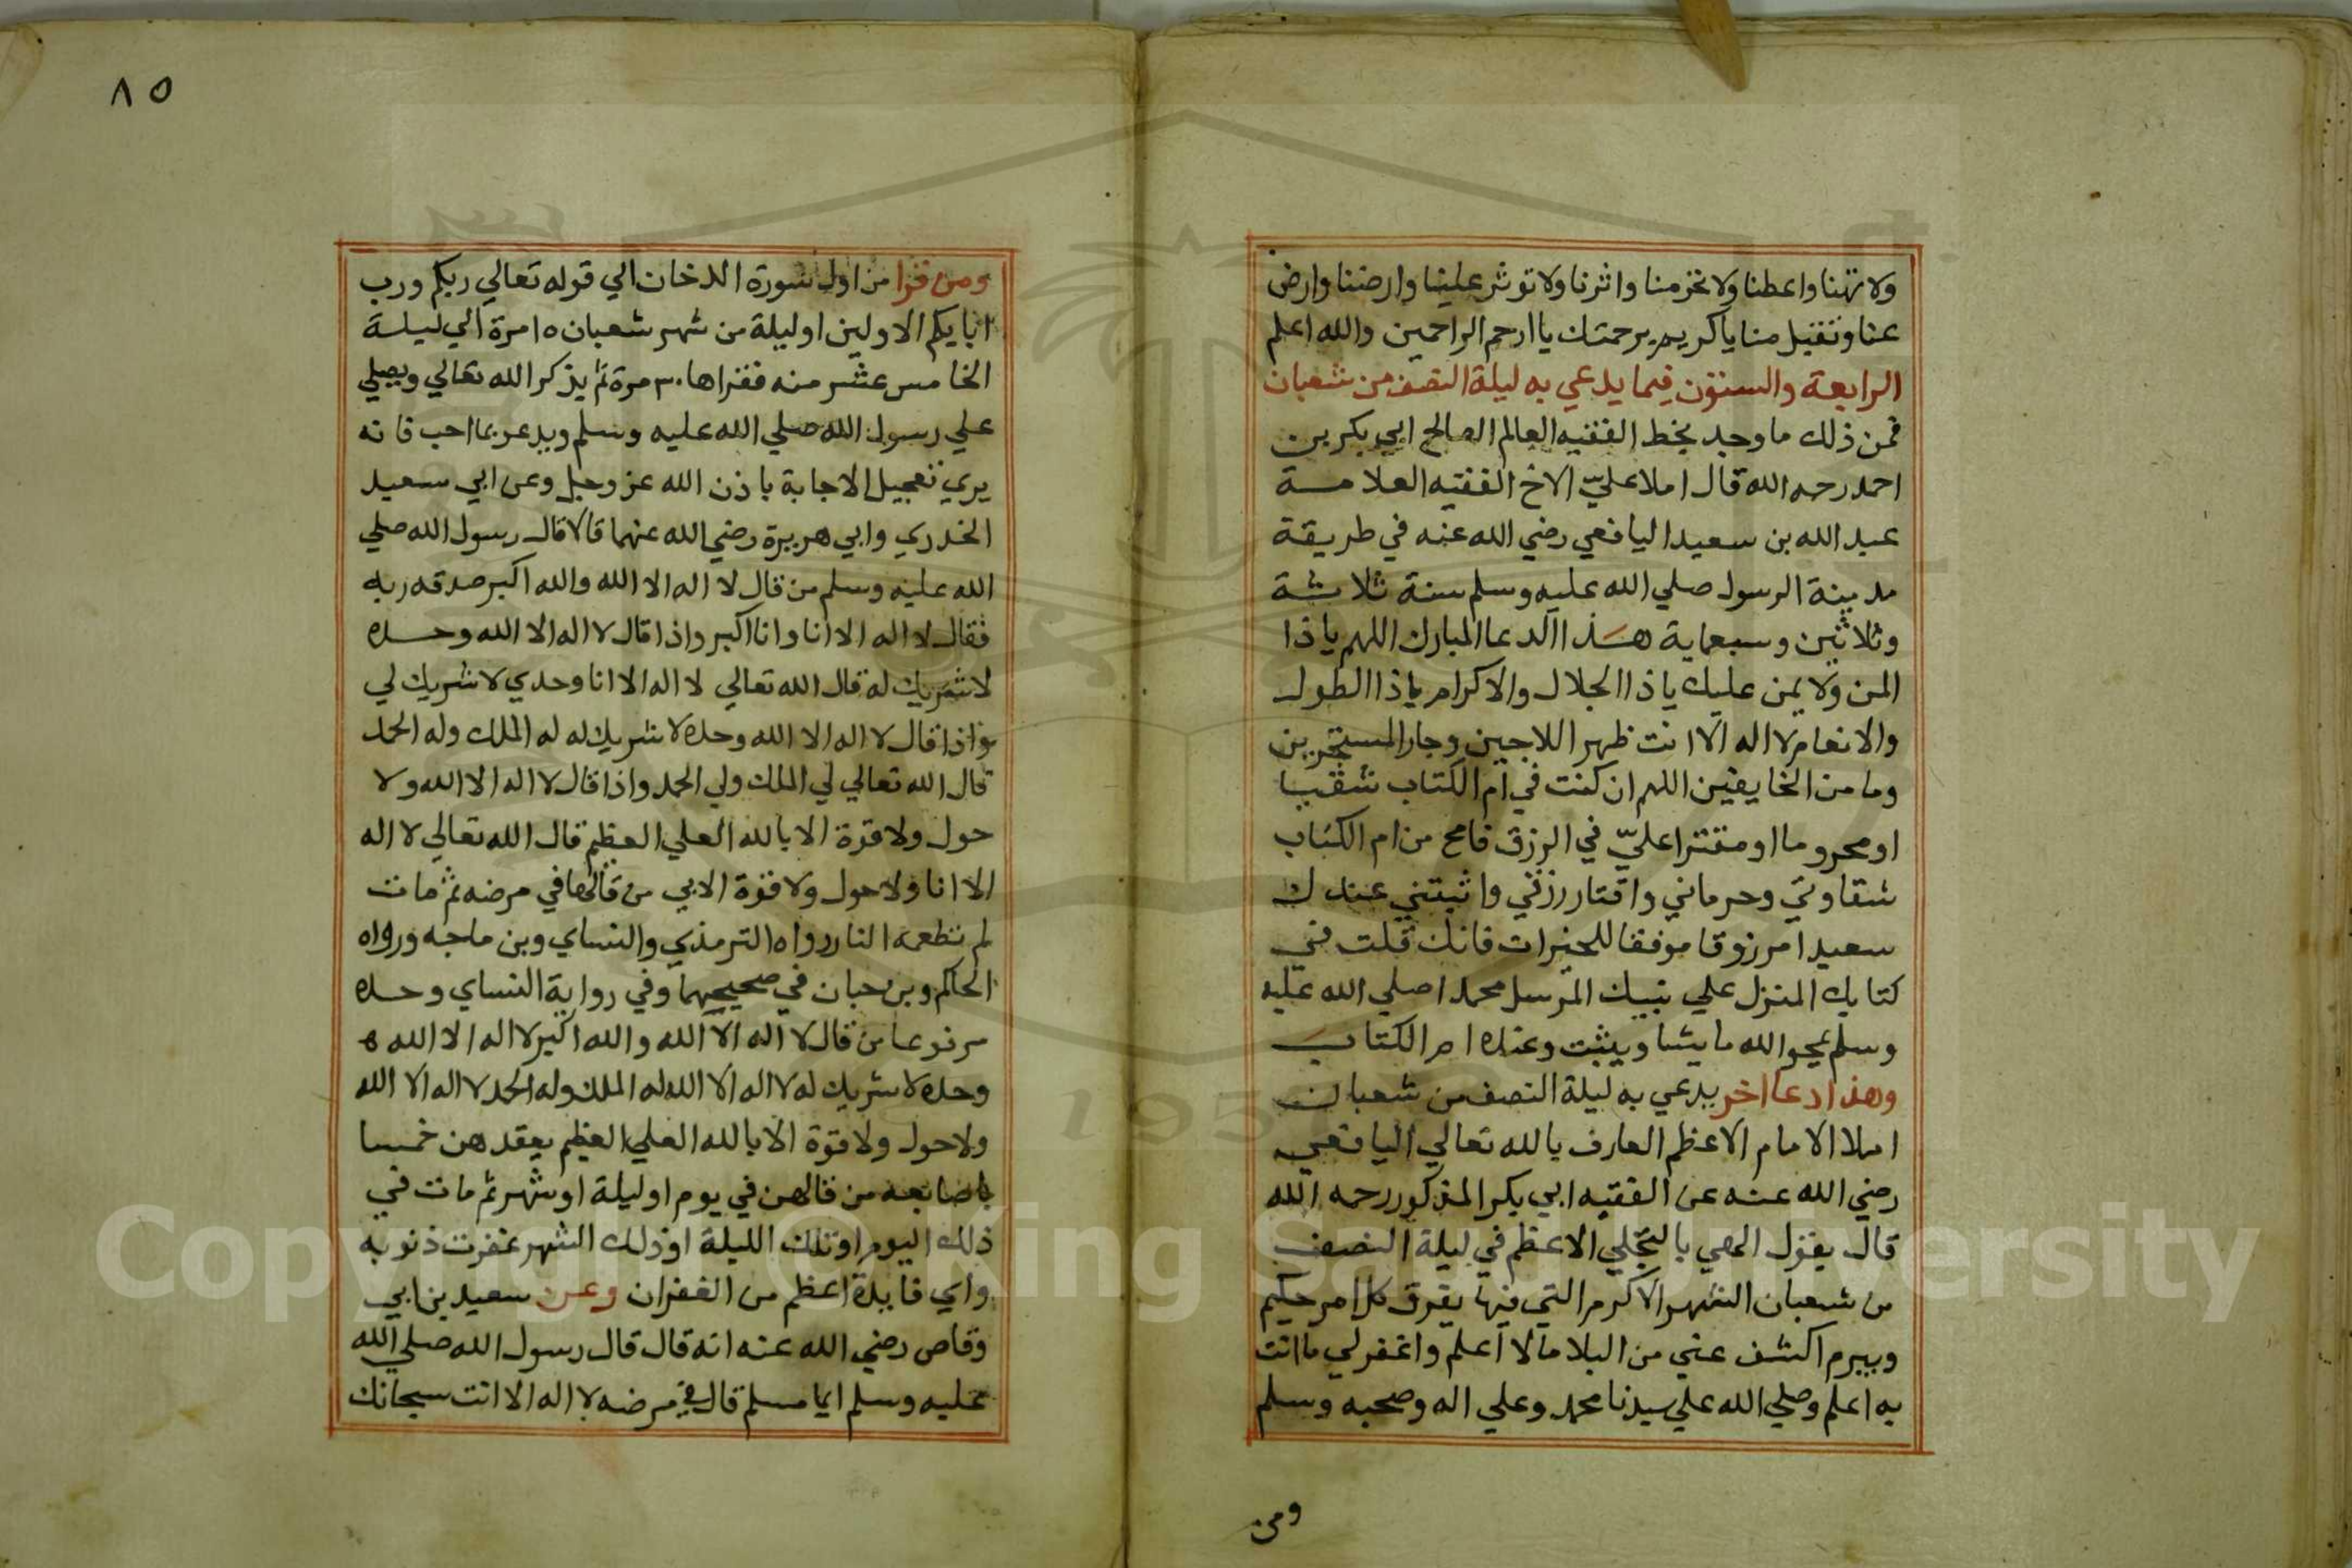 ولا تهنا واعطنا ولا تحرمنا واثرنا ولا توثر علينا وارضنا وارض
عنا وتقبل منا ياكريم برحمتك يا ارحم الراحمين والله اعلم
الرابعة والستون فيما يدعي به ليلة النصف من شعبان
فمن ذلك ما وجد بخط الفقيه العالم الصالح ابي بكر بن
احمد رحمه الله قال املا عليّ الاخ الفقيه العلامة
عبد الله بن سعيد اليافعي رضي الله عنه في طريقة
مدينة الرسول صلي الله عليه وسلم سنة ثلاثة
وثلاثين وسبعماية هذا الدعا المبارك اللهم ياذا
المن ولا يمن عليك ياذا الجلال والاكرام ياذا الطول
والانعام لا اله الا انت ظهر اللاجين وجار المستجيرين
ومامن الخايفين اللهم ان كنت في ام الكتاب شقيا
او محروما او مقترا عليّ في الرزق فامح من ام الكتاب
شقاوتي وحرماني واقتار رزقي واثبتني عندك
سعيدا مرزوقا موفقا للخيرات فانك قلت في
كتابك المنزل علي نبيك المرسل محمد صلي الله عليه
وسلم يمحو الله ما يشا ويثبت وعنده ام الكتاب
وهذا دعا اخر يدعي به ليلة النصف من شعبان
املا الامام الاعظم العارف بالله تعالي اليافعي
رضي الله عنه عن الفقيه ابي بكر المذكور رحمه الله
قال يقول الهي بالتجلي الاعظم في ليلة النصف
من شعبان الشهر الاكرم التي فيها يفرق كل امر حكيم
ويبرم اكشف عني من البلا ما لا اعلم واغفر لي ما انت
به اعلم وصلي الله علي سيدنا محمد وعلي اله وصحبه وسلم
ومن
٨٥
ومن قرا من اول سورة الدخان الي قوله تعالي ربكم ورب
ابايكم الاولين اول ليلة من شهر شعبان ١٥ مرة الي ليلة
الخامس عشر منه فقراها ٣٠ مرة ثم يذكر الله تعالي ويصلي
علي رسول الله صلي الله عليه وسلم ويدعو بما احب فانه
يري تعجيل الاجابة باذن الله عز وجل وعن ابي سعيد
الخدري وابي هريرة رضي الله عنهما قالا قال رسول الله صلي
الله عليه وسلم من قال لا اله الا الله والله اكبر صدقه ربه
فقال لا اله الا انا وانا اكبر واذا قال لا اله الا الله وحده
لا شريك له قال الله تعالي لا اله الا انا وحدي لا شريك لي
واذا قال لا اله الا الله وحده لا شريك له له الملك وله الحمد
قال الله تعالي لي الملك ولي الحمد واذا قال لا اله الا الله ولا
حول ولا قوة الا بالله العلي العظيم قال الله تعالي لا اله
الا انا ولا حول ولا قوة الا بي من قالها في مرضه ثم مات
لم تطعمه النار رواه الترمذي والنساي وبن ماجه ورواه
الحاكم وبن حبان في صحيحيهما وفي رواية النساي وحده
مرفوعا من قال لا اله الا الله والله اكبر لا اله الا الله
وحده لا شريك له لا اله الا الله له الملك وله الحمد لا اله الا الله
ولا حول ولا قوة الا بالله العلي العظيم يعقدهن خمسا
باصابعه من قالهن في يوم او ليلة او شهر ثم مات في
ذلك اليوم او تلك الليلة او ذلك الشهر غفرت ذنوبه
واي فايدة اعظم من الغفران وعن سعيد بن ابي
وقاص رضي الله عنه انه قال قال رسول الله صلي الله
عليه وسلم ايما مسلم قال في مرضه لا اله الا انت سبحانك
Copyright © King Saud University
1957